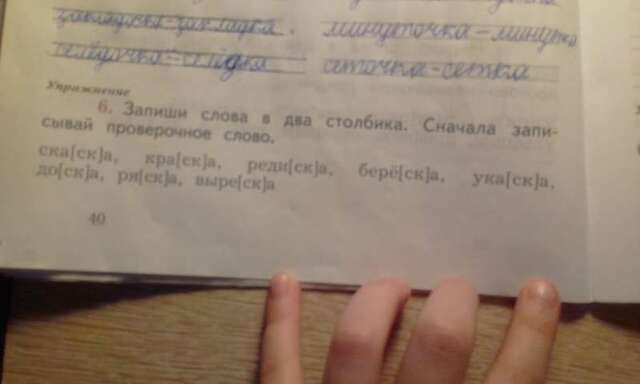 закладочка-закладка. минуточка-минутка
сеточка-сетка
Упражнение
6. Запиши слова в два столбика. Сначала запи-
сывай проверочное слово.
ска[ск]а, кра[ск]а, реди[ск]а, берё[ск]а, ука[ск]а,
до[ск]а, ря[ск]а, выре[ск]а
40